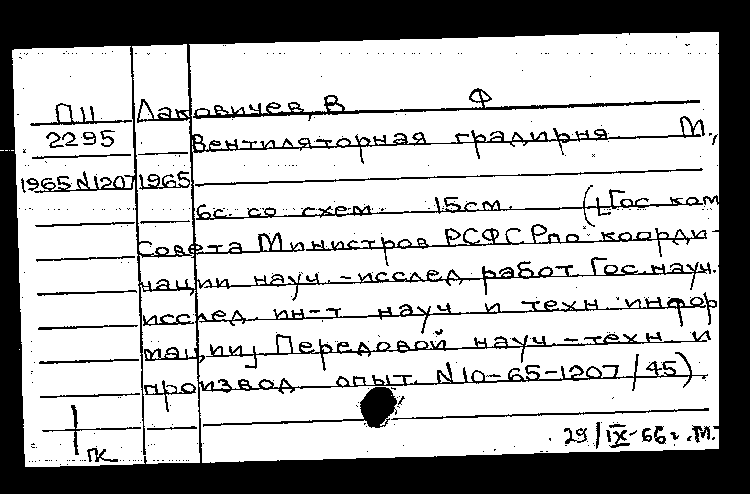 П11 Лаковичев, В Ф
2295 Вентиляторная градирня М.,
1965 N1207 1965
6с. со схем. 15см. ([Гос. ком
Совета Министров РСФСР по коорди-
нации науч.-исслед работ Гос. науч.
исслед. ин-т науч и техн. инфор
мации] Передовой науч-техн и
производ опыт. N10-65-1207/45).
ГК
29/IX-66г. М.